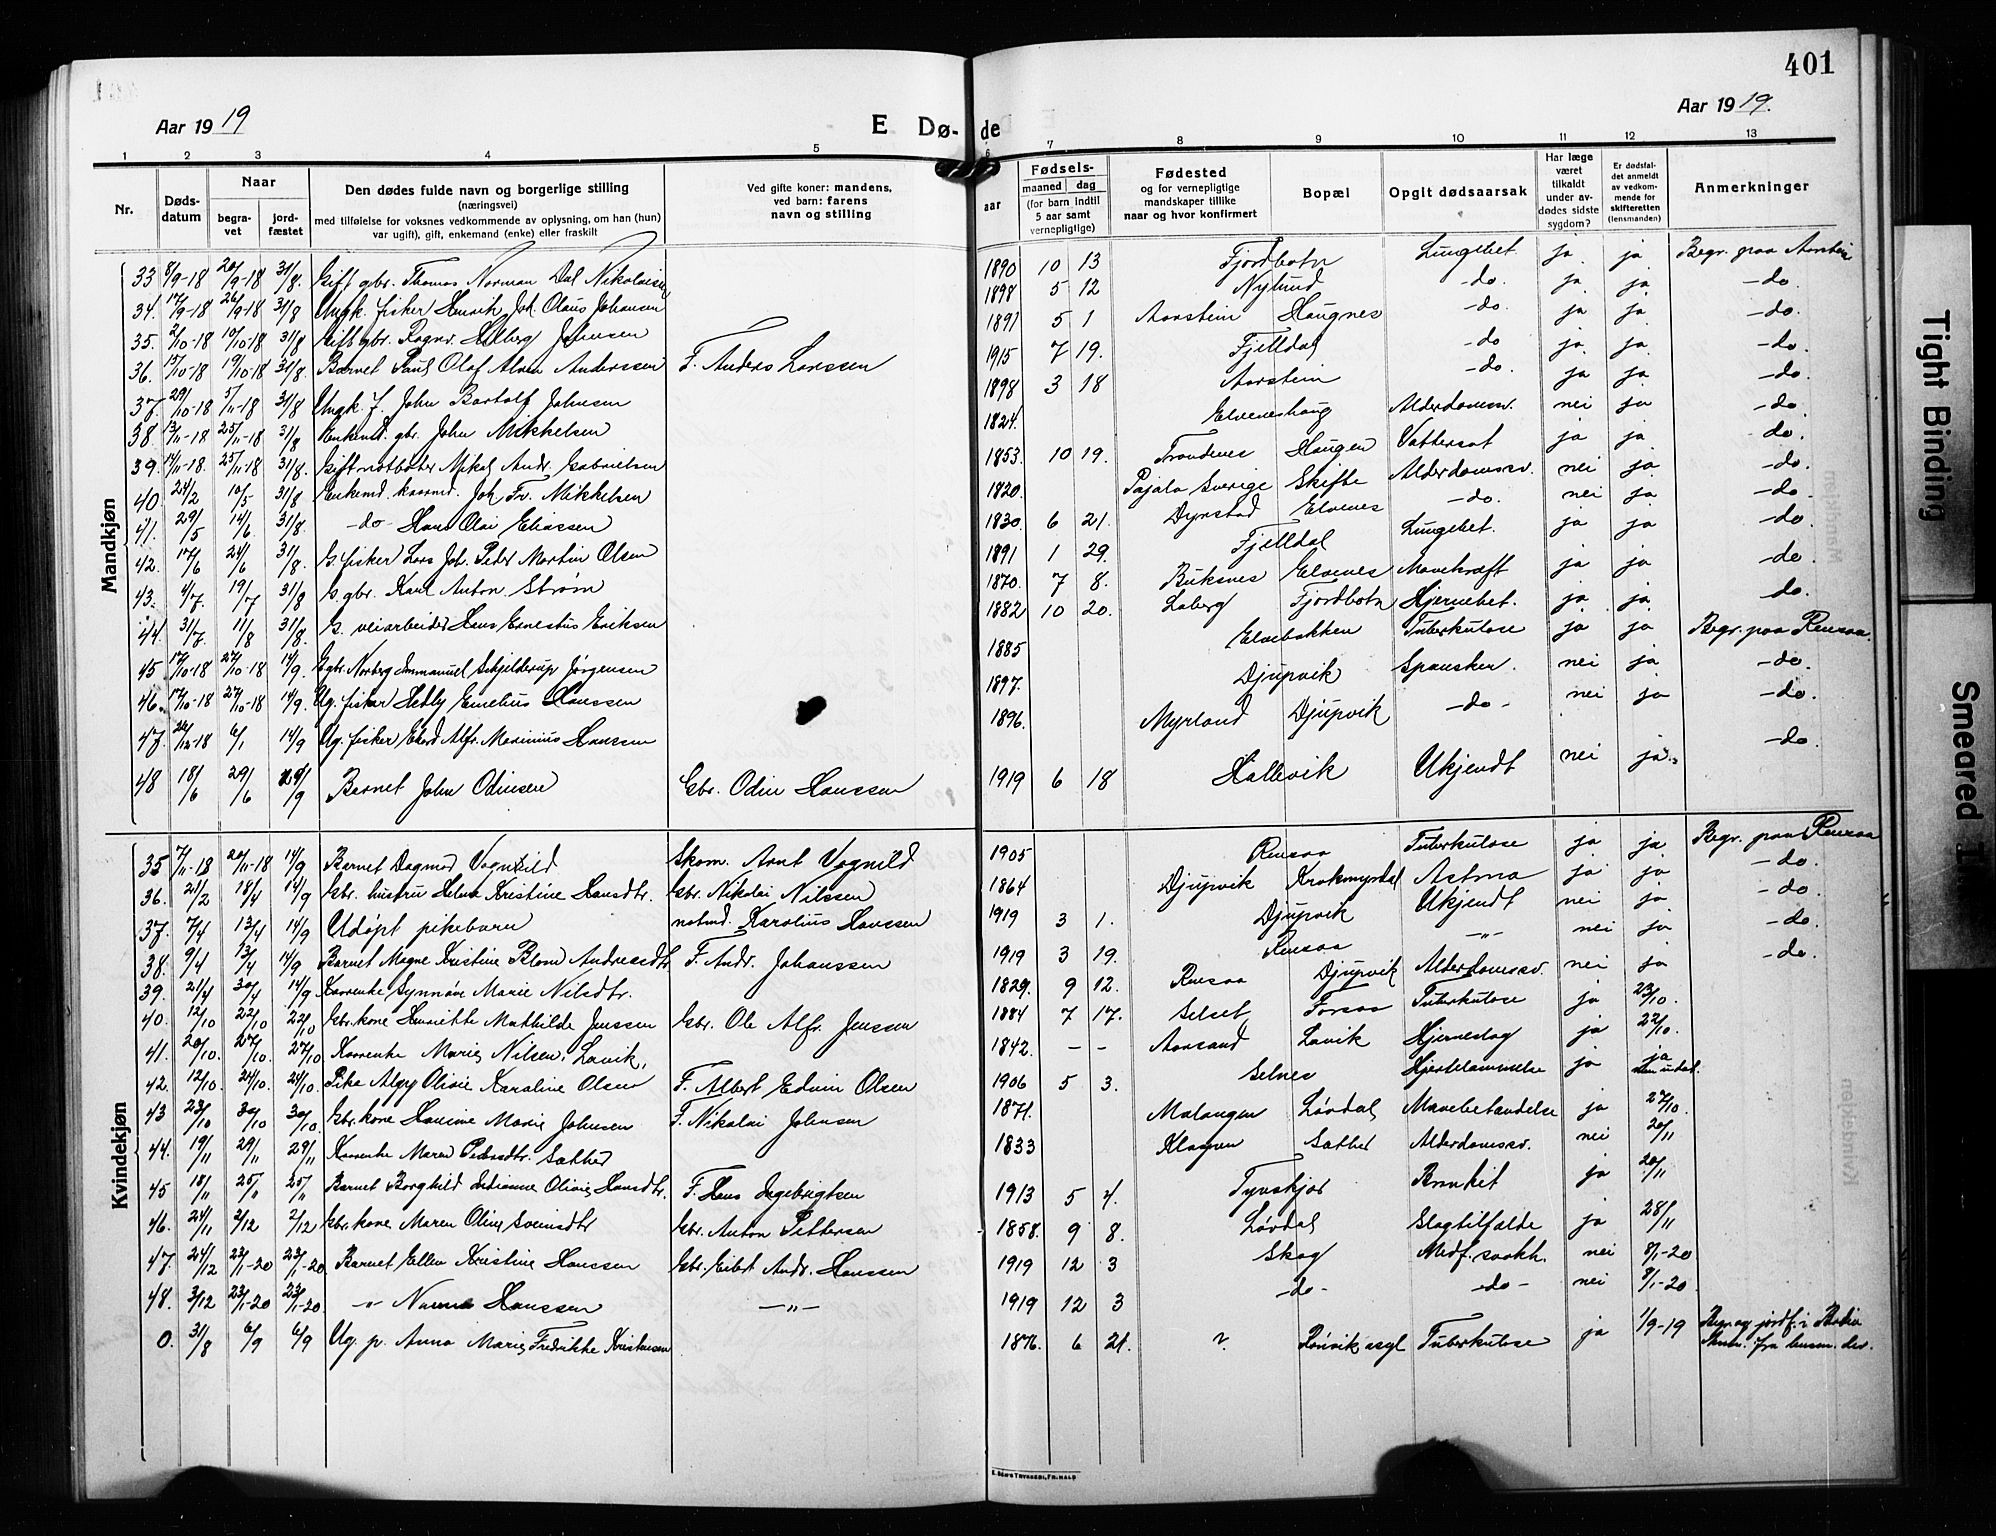 401
Aar 1919
E Dø-
de
Aar 1919.
1 2 3 4 5 6 7 8 9 10 11 12 13
Nr.
Døds-
datum
Naar
begra-
vet
jord-
fæstet
Den dødes fulde navn og borgerlige stilling
(næringsvei)
med tilføielse for voksnes vedkommende av oplysning, om han (hun)
var ugift), gift, enkemand (enke) eller fraskilt
Ved gifte koner: mandens,
ved barn: farens
navn og stilling
aar
Fødsels-
maaned dag
(for barn indtil
5 aar samt
vernepligtige)
Fødested
og for vernepligtige
mandskaper tillike
naar og hvor konfirmert
Bopæl
Opgit dødsaarsak
Har læge
været
tilkaldt
under av-
dødes sidste
sygdom?
Er dødsfal-
det anmeldt
av vedkom-
mende for
skifteretten
(lensmanden)
Anmerkninger
Mandkjøn
33 8/9-18 20/9-18 31/8. Gift gbr. Thomas Norman Dal Nikolaisen 1890 10 13 Fjordbotn Lungebet. ja ja Begr. paa Aarstein
34. 17/9-18 26/9-18 31/8 Ungk. fisker Henrik Joh. Olaus Johansen 1898 5 12 Nylund -do. ja ja -do.
35. 2/10-18 10/10-18 31/8 Gift gbr. Ragnv. Hilberg Johnsen 1891 5 1 Aarstein Haugnes -do. ja ja -do.
36. 15/10-18 19/10-18 31/8. Barnet Paul Olaf Alvin Anderssen F. Anders Larssen 1915 7 19. Fjelldal -do ja ja -do.
37. 29/10-18 5/11-18 31/8 Ungk. f. John Bartolf Johnsen 1898 3 18 Aarstein -do. ja ja -do.
38. 13/11-18 25/11-18 31/8 Enkemd. gbr. John Mikkelsen 1824. Elveneshaug Alderdomssv. nei ja -do.
39. 14/11-18. 25/11-18 31/8. Gift notbøter Mikal Andr. Gabrielsen 1853. 10 19. Trondenes Haugen Vattersot ja ja -do.
40. 24/2 10/5 31/8 Enkemd. kaarmd. Joh. Fr. Mikkelsen 1820. Pajala Sverige Skifte Alderdomssv. nei ja -do.
41. 29/5 14/6 31/8. -do- Hans Olai Eliassen 1830. 6 21. Dyrstad Elvenes -do. nei ja -do.
42. 17/6 24/6 31/8. G. fisker Lars Joh. Peder Martin Olsen 1891 1 29. Fjelldal Lungebet. ja ja -do.
43. 4/7. 19/7 31/8 G. gbr. Karl Anton Strøm 1870. 7 8. Buksnes Elvenes Mavekræft ja ja -do.
44. 31/7. 11/8 31/8. G. veiarbeider Hans Ernestus Eriksen 1882 10 20. Laberg Fjordbotn Hjernebet. ja ja do.
45 17/10-18 27/10-18 14/9. G. gbr. Norberg Immanuel Schjelderup Jørgensen 1885 Elvebakken Tuberkulose ja ja Begr. paa Rensaa
46. 17/10-18 27/10-18 14/9. Ug. fisker Hedly Emelius Hanssen 1897. Djupvik Spansken. nei ja -do.
47. 26/12-18 6/1 14/9 Ug. fisker Edvard Alfr. Marinius Hanssen 1896. Myrland Djupvik -do- nei ja -do.
48 18/6 29/6 29/9 Barnet John Odinsen Gbr. Odin Hanssen 1919 6 18 Hallevik Ukjendt nei ja. -do.
Kvindekjøn
35 7/11-18 20/11-18 14/9 Barnet Dagmar Vognild Skom. Arnt Vognild 1905 Rensaa Tuberkulose ja ja Begr. paa Rensaa
36. 21/2 18/4 14/9 Gbr. hustru Helene Kristine Hansdtr. Gbr. Nikolai Nilssen 1864 Djupvik Krakmyrdal Astma ja ja -do.
37. 7/4 13/4 14/9 Udøpt pikebarn notmd. Karolius Hanssen 1919 3 1. Djupvik Ukjendt nei ja -do.
38. 9/4 13/4 14/9 Barnet Magne Kristine Blom Andreasdtr. F. Andr. Johanssen 1919 3 19. Rensaa -"- nei ja -do.
39. 21/4 30/4 14/9 Kaarenke Synnøve Marie Nilsdtr. 1829. 9 12. Rensaa Djupvik Alderdomssv. nei ja -do.
40. 12/10 22/10 22/10 Gbr. kone Henriette Mathilde Jenssen Gbr. Ole Alfr. Jenssen 1884 7 17. Selset Forsaa Tuberkulose ja 23/10.
41. 20/10. 27/10. 27/10 Kaarenke Marie Nilsen, Lavik, 1842. - - Aarsand Lavik Hjerneslag ja 22/10.
42. 12/10 24/10. 24/10. Pike Algy Olivie Karoline Olsen F. Albert Edvin Olsen 1906 5 3. Selnes Hjertelammelse ja ja
43 23/10 30/10 30/10. Gbr. kone Hansine Marie Johnsen F. Nikolai Johnsen 1871. Malangen Løvdal Mavebetændelse ja 27/10.
44. 19/11 29/11 29/11 Kaarenke Maren Pedersdtr. Sæther 1833 Klagnen Sæther Alderdomssv. nei 20/11
45 18/11 25/" 25/" Barnet Borghild Indianne Olivie Hansdtr. F. Hans Ingebrigtsen 1913 5 4. Tynskjær Bronkit ja 20/11
46. 24/11 2/12 2/12 Gbr. kone Maren Oline Svensdtr Gbr. Anton Pettersen 1858. 9 8. Løvdal Slagtilfælde ja 28/11
47. 24/12 23/1-20 23/1-20. Barnet Ellen Kristine Hanssen Gbr. Eilert Andr. Hanssen 1919 12 3 Skog Medf. svakh. nei 8/1-20
48. 3/12 23/1-20 23/1-20. -"- Nanna Hanssen -"- 1919 12 3 -do- -do- nei 8/1-20
0. 31/8 6/9 6/9 Ug. p. Anna Marie Fredrikke Kristensen 1876. 6 21. ? Rønvik asyl Tuberkulose ja 1/9-19 Begr. og jordf. i Bodin
E. SEM'S TRYKKERI, FR.HALD
Tight Binding
Smeared